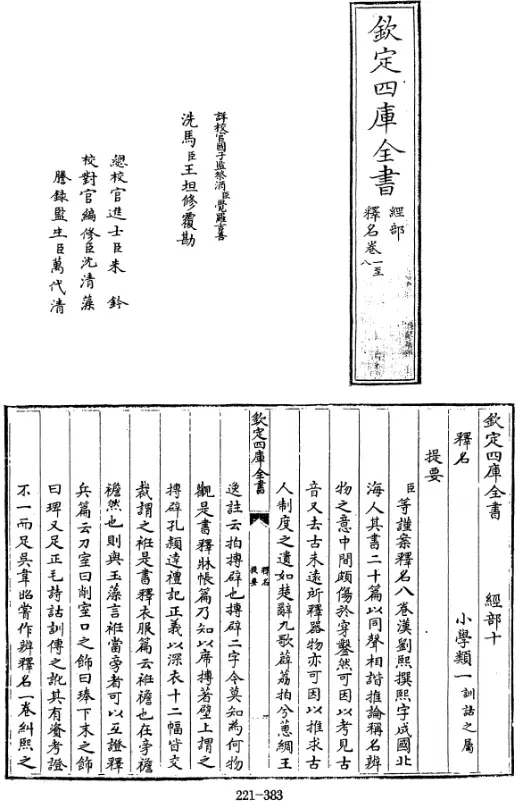 欽定四庫全書
經部
釋名卷一至
八
詳校官國子監祭酒臣覺羅吉善
洗馬臣王坦修覆勘
總校官進士臣朱鈐
校對官編修臣沈清藻
謄錄監生臣萬代清
欽定四庫全書 經部十
釋名 小學類一訓詁之屬
提要
臣等謹案釋名八卷漢劉熙撰熙字成國北
海人其書二十篇以同聲相諧推論稱名辨
物之意中間頗傷於穿鑿然可因以考見古
音又去古未遠所釋器物亦可因以推求古
人制度之遺如楚辭九歌薜荔拍兮蕙綢王
欽定四庫全書
釋名
提要
逸註云拍搏辟也搏辟二字今莫知為何物
觀是書釋牀帳篇乃知以席搏著壁上謂之
搏辟孔穎達禮記正義以深衣十二幅皆交
裁謂之衽是書釋衣服篇云衽襜也在旁襜
襜然也則與玉藻言衽當旁者可以互證釋
兵篇云刀室曰削室口之飾曰琫下末之飾
曰琕又足正毛詩詁訓傳之訛其有資考證
不一而足吳韋昭嘗作辨釋名一卷糾熙之
221-383